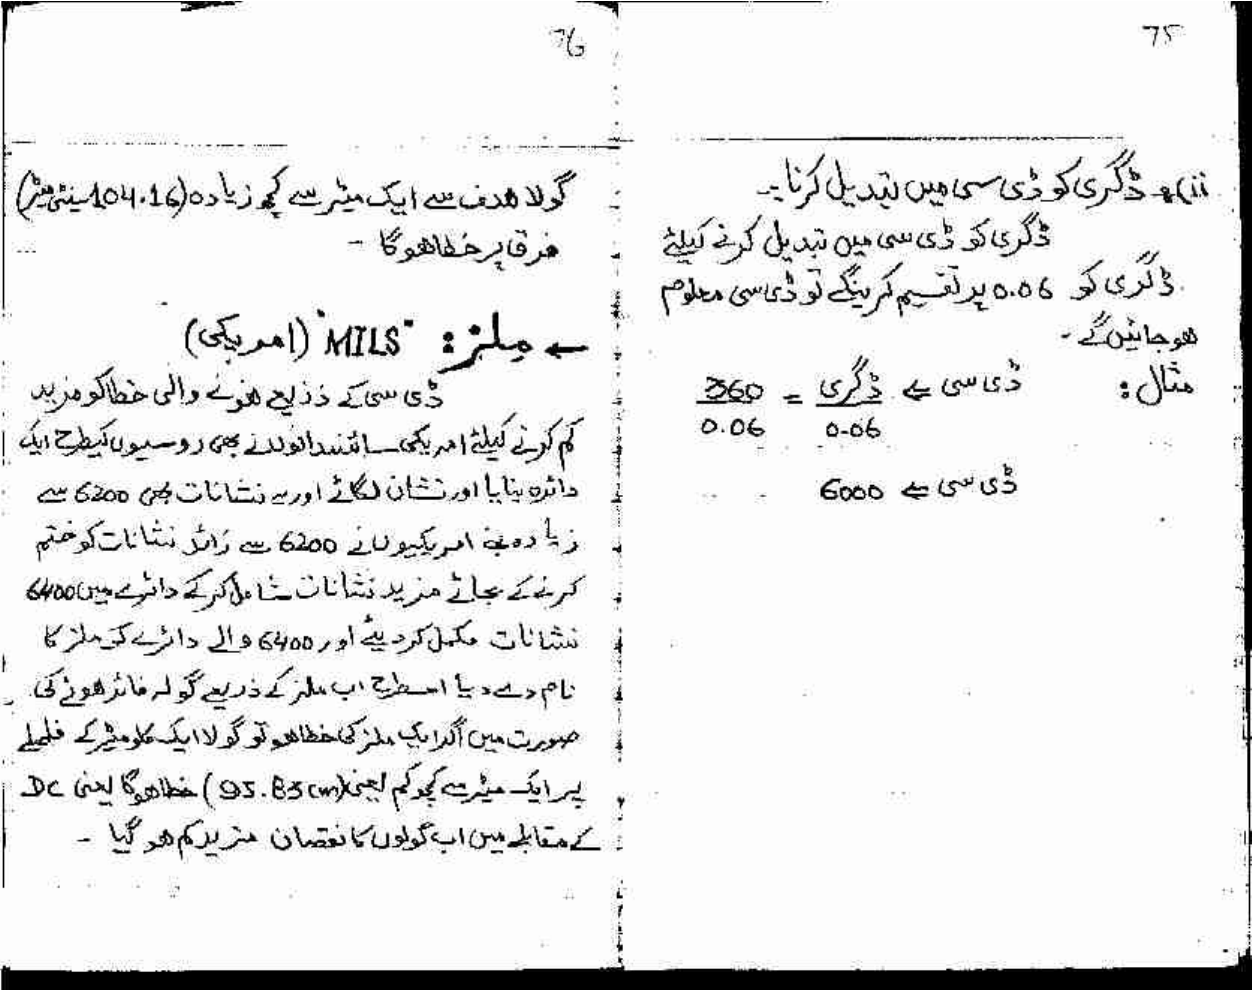 75
(ii) ڈگری کو ڈی سی میں تبدیل کرنا۔
ڈگری کو ڈی سی میں تبدیل کرنے کیلئے
ڈگری کو 0.06 پر تقسیم کرینگے تو ڈی سی معلوم
ھو جائیں گے۔
مثال: ڈی سی ⇐ ڈگری = 360
0.06 0.06
ڈی سی ⇐ 6000
76
گولا ھدف سے ایک میٹر سے کچھ زیادہ (104.16 سینٹی میٹر)
فرق پر خطا ھوگا -
← مِلز: "MILS" (امریکی)
ڈی سی کے ذریعے ھونے والی خطا کو مزید
کم کرنے کیلئے امریکی سائنسدانوں نے بھی روسیوں کیطرح ایک
دائرہ بنایا اور نشان لگائے اور یہ نشانات بھی 6200 سے
زیادہ بنے امریکیوں نے 6200 سے زائد نشانات کو ختم
کرنے کے بجائے مزید نشانات شامل کرکے دائرے میں 6400
نشانات مکمل کر دیئے اور 6400 والے دائرے کو ملز کا
نام دے دیا اسطرح اب ملز کے ذریعے گولہ فائر ھونے کی
صورت میں اگر ایک ملز کی خطا ھو تو گولا ایک کلومیٹر کے فاصلے
پر ایک میٹر سے کچھ کم یعنی (95.83 cm) خطا ھوگا یعنی DC
کے مقابلے میں اب گولوں کا نقصان مزید کم ھو گیا -